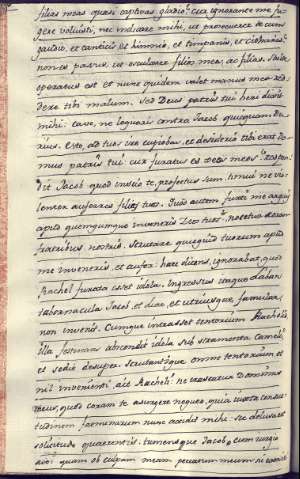 filias meas quasi captivas gladio? cur ignorante me fu-
gere voluisti, nec indicare mihi, ut prosequerer te cum
gaudio, et canticis et himnis, et timpanis, et citharis?
non es passus, ut oscularer filios meos, ac filias. Stulte
operatus est et nunc quidem valet manus mea red-
dere tibi malum. sed Deus patris tui heri dixit
mihi. cave, ne loquaris contra Jacob quicquam du-
rius. Esto, ad tuos ire cupiebas, et desiderio tibi erat do-
mus patris tui cur furatus es deos meos? respon-
dit Jacob quod inscio te, profectus sum timui ne vio-
lenter auferres filias tuas. Quod autem furti me arguis
apud quemqumque inveneris Deos tuos, necetur coram
fratribus nostris. Scrutare quiquid tuorum apud
me inveneris, et aufer. haec dicens, ignorabat, quod
Rachel furata esset idola. Ingressus itaque Laban
tabernacula Jacob, et Liae, et utriusque famulae,
non invenit. Cumque intrasset tentorium Rachelis
illa festinans abscondit idola sub stramenta cameli,
et sedit desuper. scrutantique omne tentorium, et
nil invenienti ait Rachel: ne irascatur dominus
meus, quod coram te assurgere nequeo, quia iuxta consue-
tudinem faeminarum nunc accidit mihi. sic delusa est
solicitudo quaerentis. tumensque Jacob, cum iurgio
ait: quam ob culpam meam